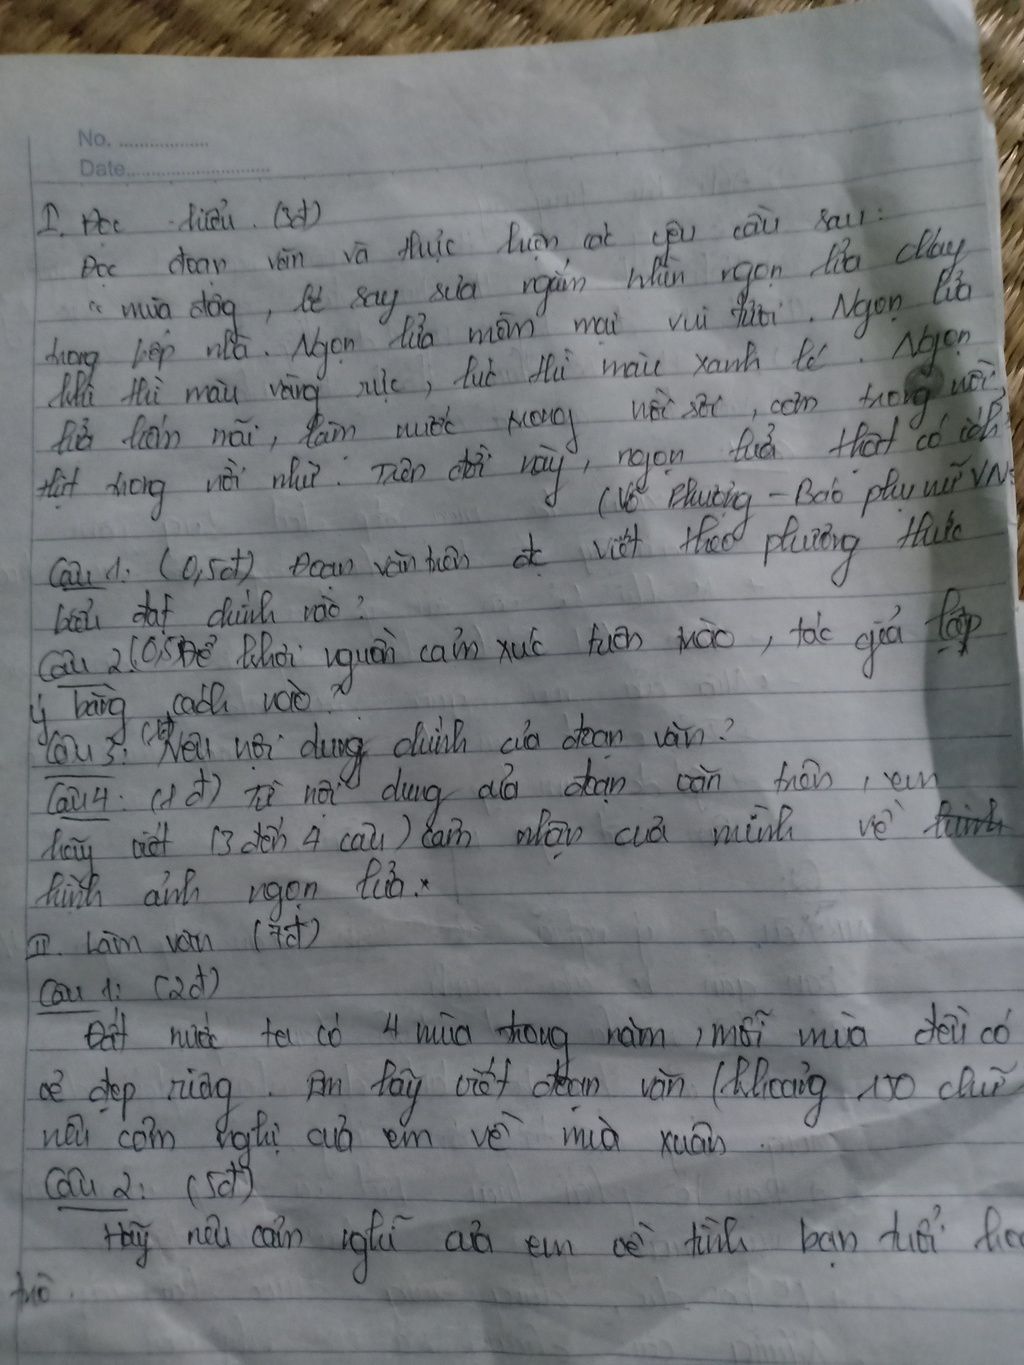 No. ..................
Date..............................
I. Đọc hiểu. (3đ)
Đọc đoạn văn và thực hiện các yêu cầu sau:
" mùa đông, bé say sưa ngắm nhìn ngọn lửa cháy
trong bếp nhà. Ngọn lửa mềm mại vui tươi. Ngọn lửa
khi thì màu vàng rực, lúc thì màu xanh lé. Ngọn
lửa liếm nồi, làm nước trong nồi sôi, cơm trong nồi
thịt trong nồi nhừ. Trên đời này, ngọn lửa thật có ích
(Vũ Phương - Báo phụ nữ VN
Câu 1: (0,5đ) Đoạn văn trên đc viết theo phương thức
biểu đạt chính nào?
Câu 2 (0,5 Để khơi nguồn cảm xúc trên, tác giả lập
ý bằng cách nào?
Câu 3: Nêu nội dung chính của đoạn văn?
Câu 4: (1đ) Từ nội dung của đoạn văn trên, em
hãy viết (3 đến 4 câu) cảm nhận của mình về hình
hình ảnh ngọn lửa.
II. Làm văn (7đ)
Câu 1: (2đ)
Đất nước ta có 4 mùa trong năm, mỗi mùa đều có
vẻ đẹp riêng. Em hãy viết đoạn văn (khoảng 150 chữ
nêu cảm nghĩ của em về mùa xuân.
Câu 2: (5đ)
Hãy nêu cảm nghĩ của em về tình bạn tuổi học
trò.